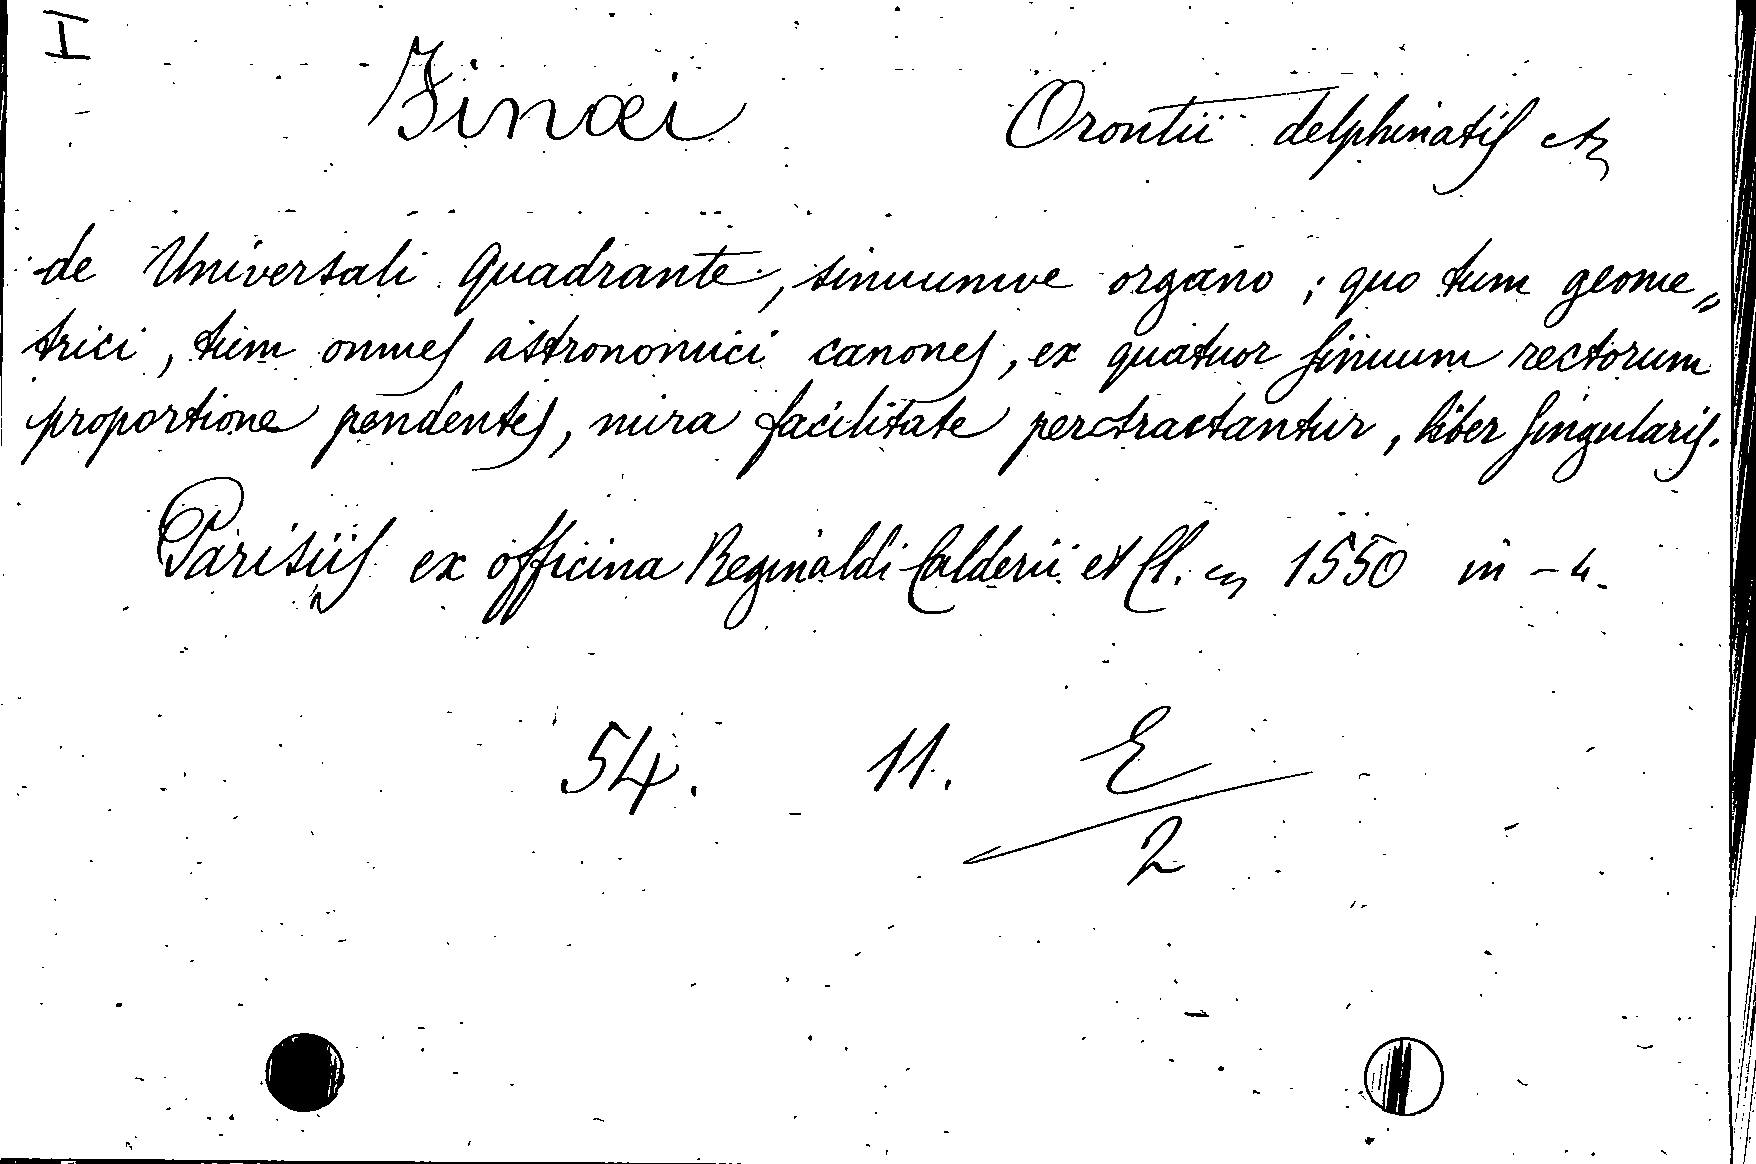 I
Finæi Orontii delphinatis etc
de Universali Quadrante, sinuumve organo; quo tum geome„
trici, tum omnes astronomici canones, ex quatuor sinuum rectorum
proportione pendentes, mira facilitate pertractantur, liber singularis.
Parisiis ex officina Reginaldi Calderii et Cl. 1550 in-4.
54. 11. E
2